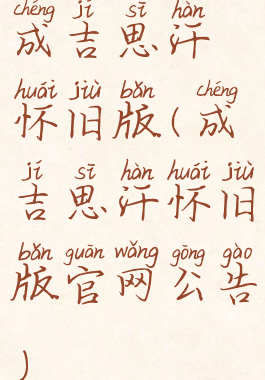 chéng jí sī hàn
成吉思汗
huái jiù bǎn chéng
怀旧版(成
jí sī hàn huái jiù
吉思汗怀旧
bǎn guān wǎng gōng gào
版官网公告
)